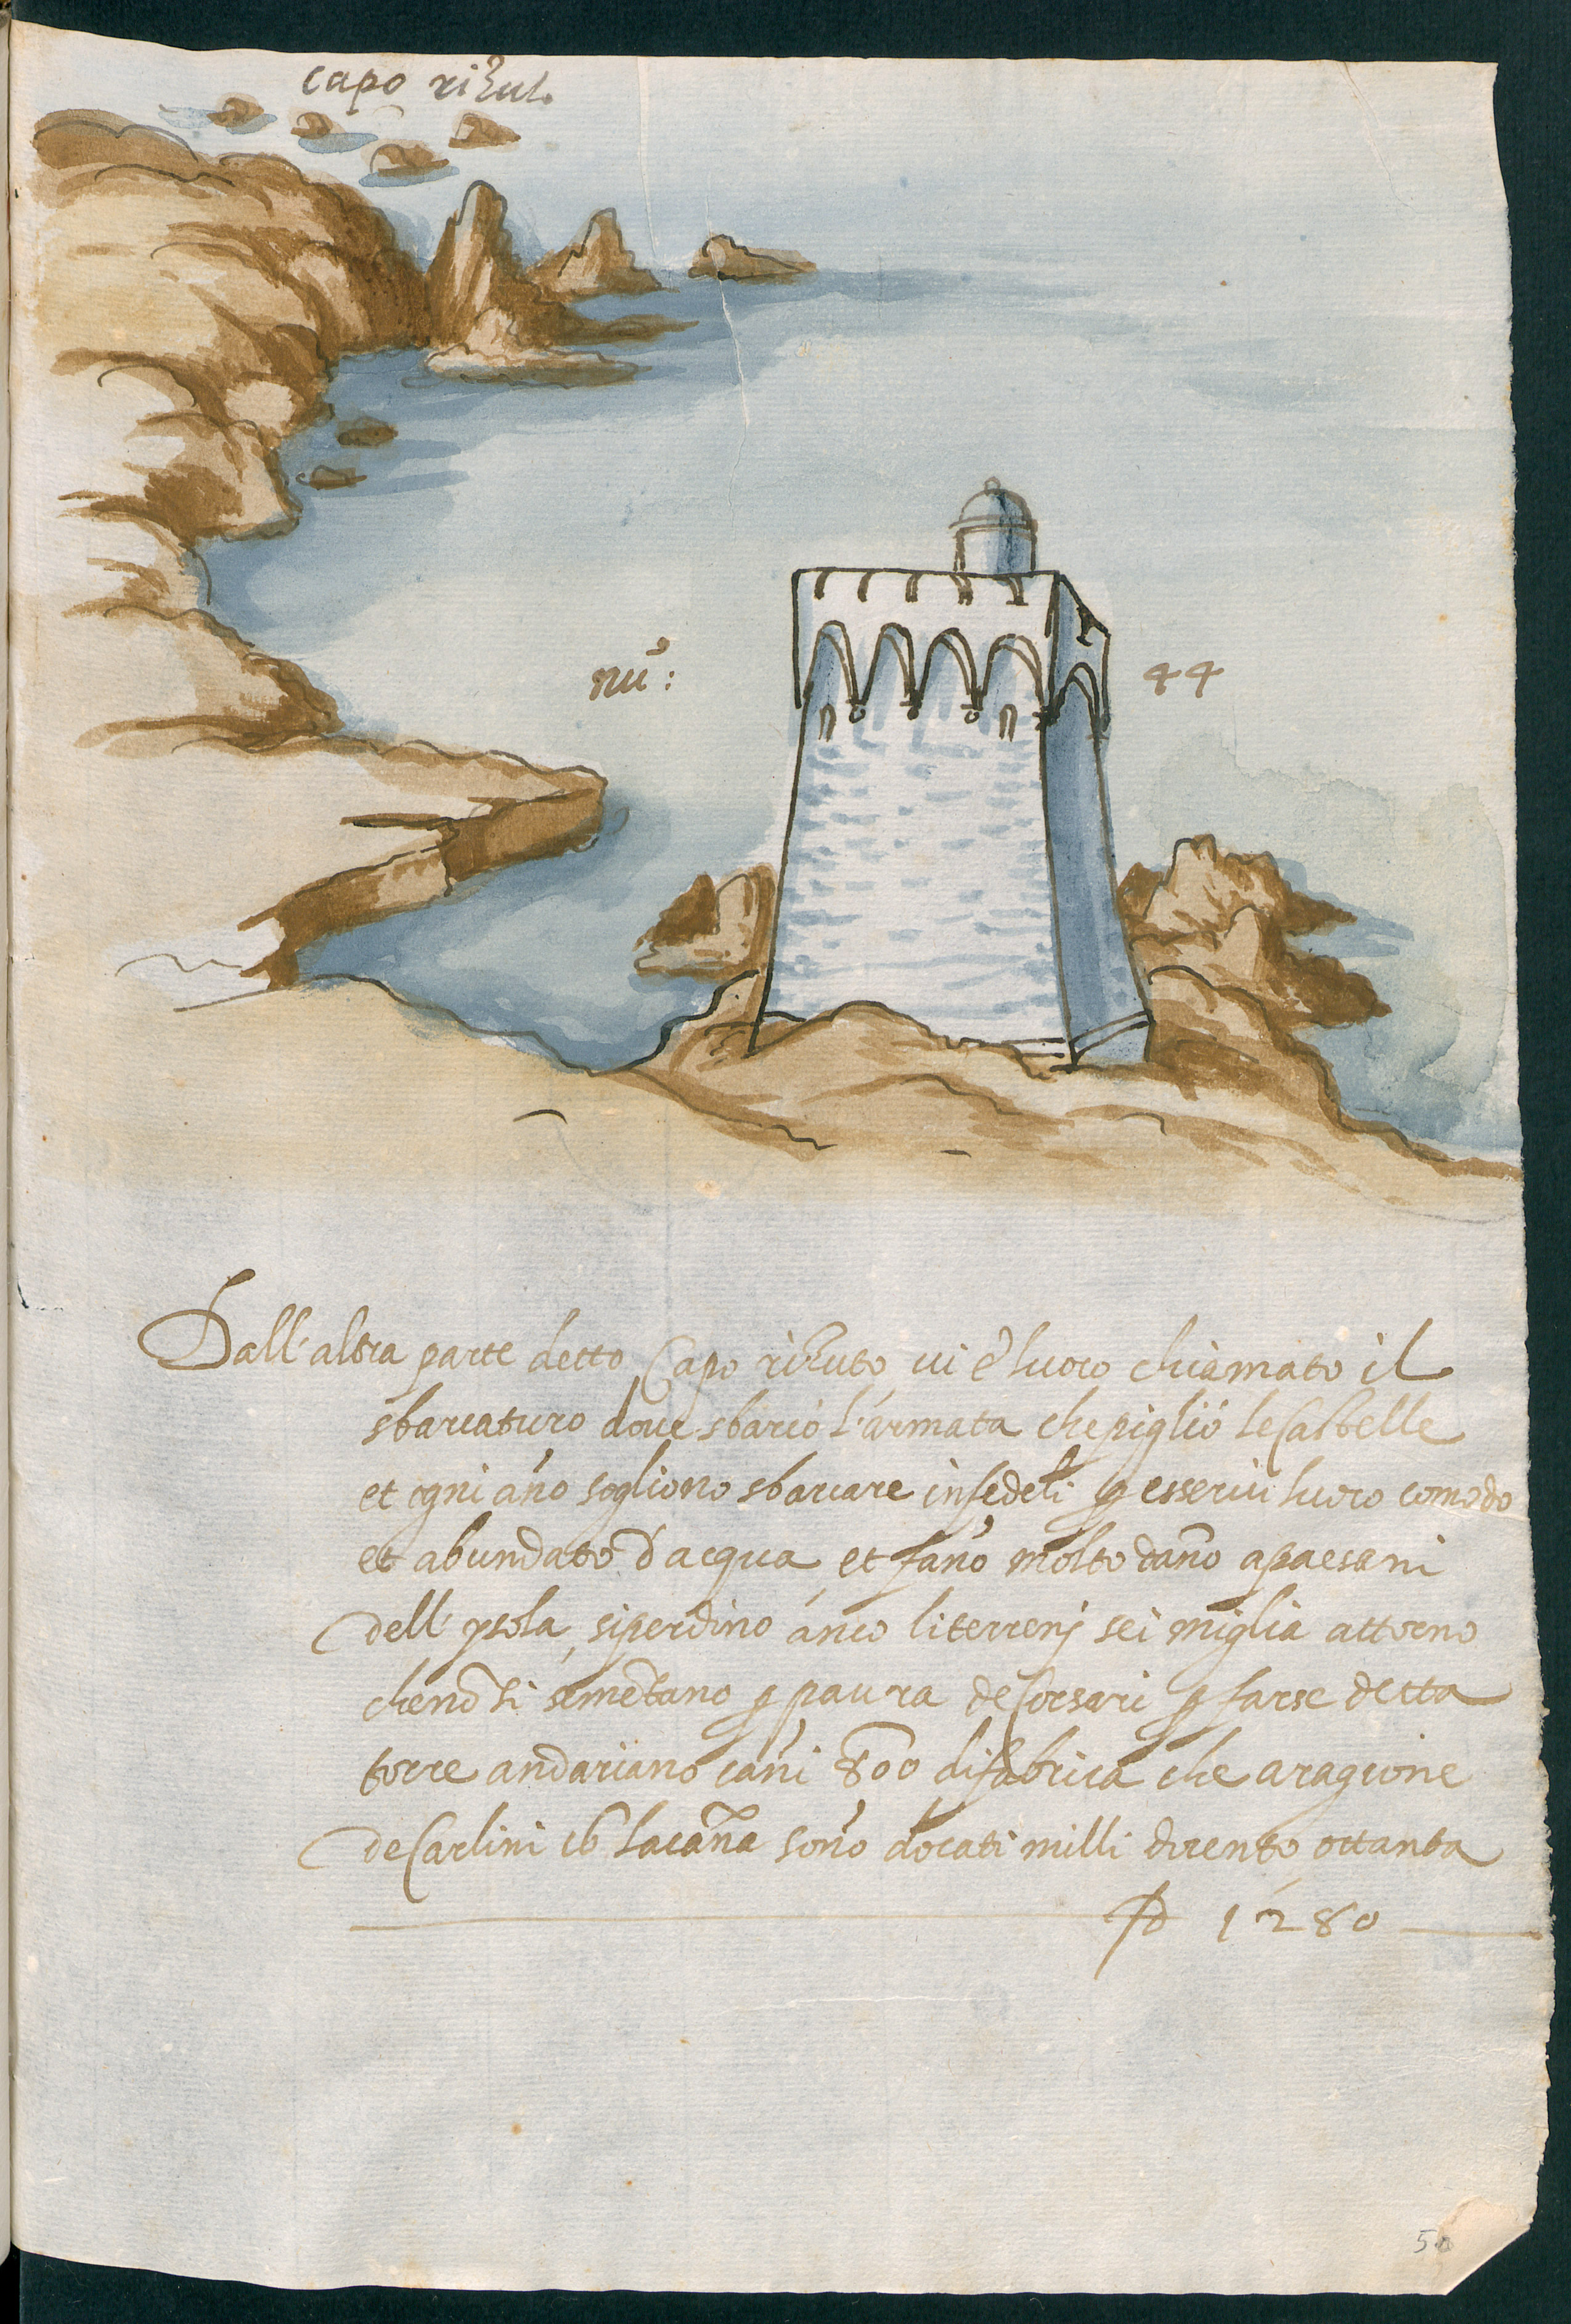 capo rizut.
nu': 44
Dall'altra parte detto Capo rizuto ui e' luoco chiamato il
sbarcaturo doue sbarcò l'armata che pigliò le Castelle
et ogni año sogliono sbarcare infedeli ꝑ esserui luoco comodo
et abundato d'acqua et fano molto daño a paesani
dell'ysola, si perdino anco li terrenj sei miglia attorno
che nõ si semẽtano ꝑ paura de Corsari ꝑ farse detta
torre andariano cani 800 di fabrica che a ragione
de Carlini 16 la cãna sono docati milli ducento ottanta
D 1280
50